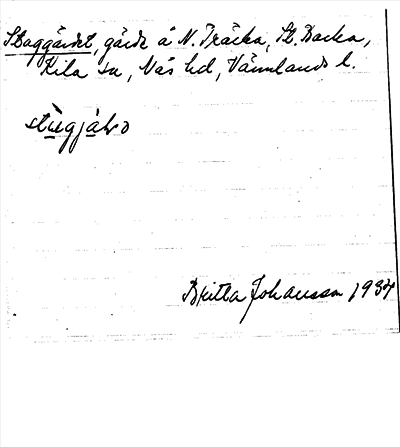 Staggärdet, gärde å N. Träcka, St. Backa,
Kila sn, Näs hd, Värmlands l.
Britta Johansson 1934